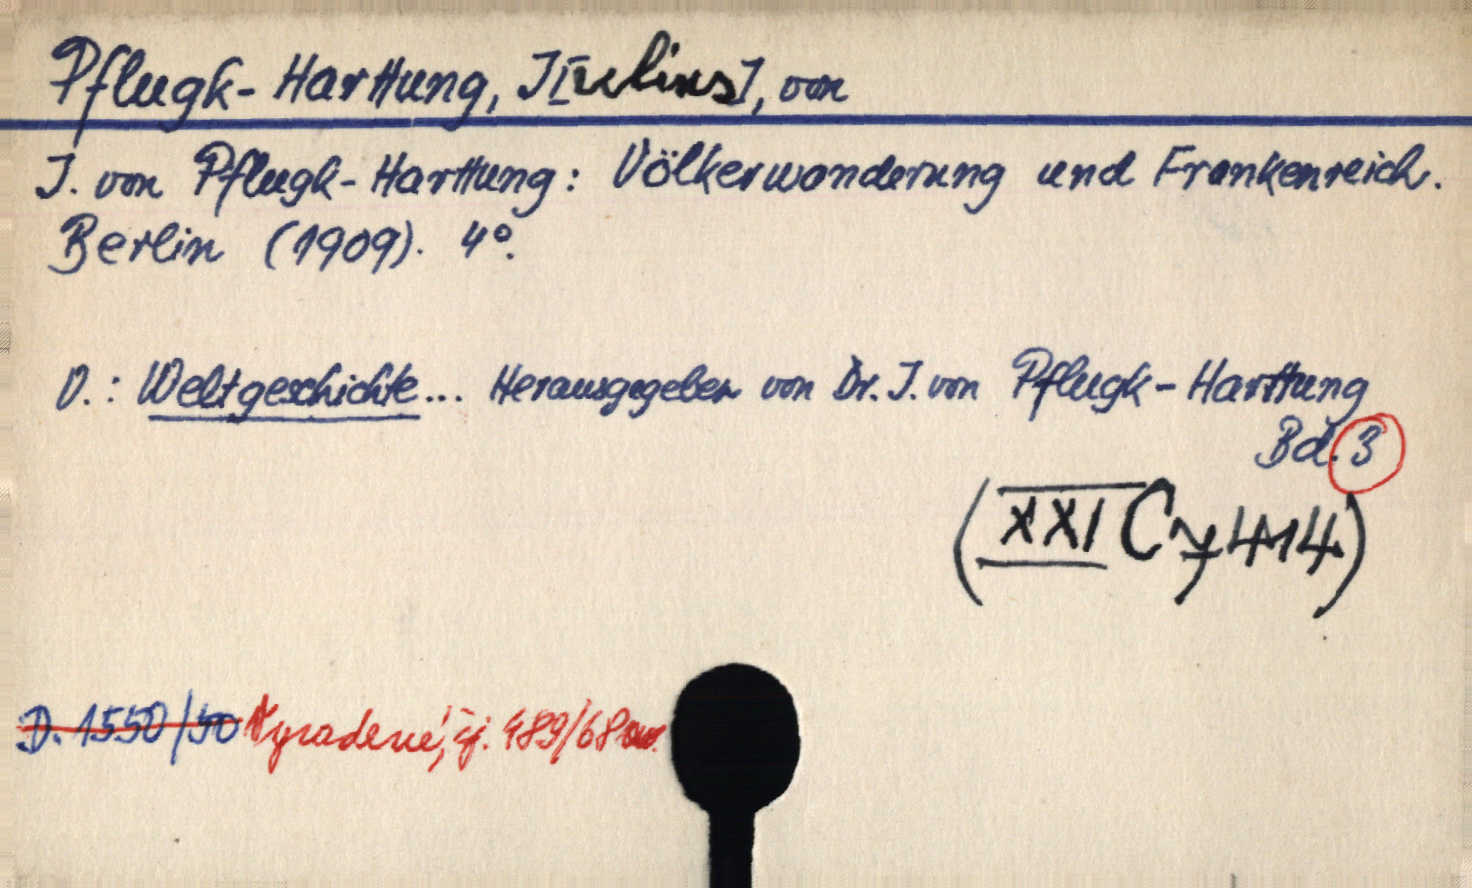 Pflugk-Harttung, J[ulius], von
J. von Pflugk-Harttung: Völkerwanderung und Frankenreich.
Berlin (1909). 4°.
V.: Weltgeschichte... Herausgegeben von Dr. J. von Pflugk-Harttung
Bd. 3
(XXI Cy 414)
D. 1550/50 Vyradené, čj. 489/68